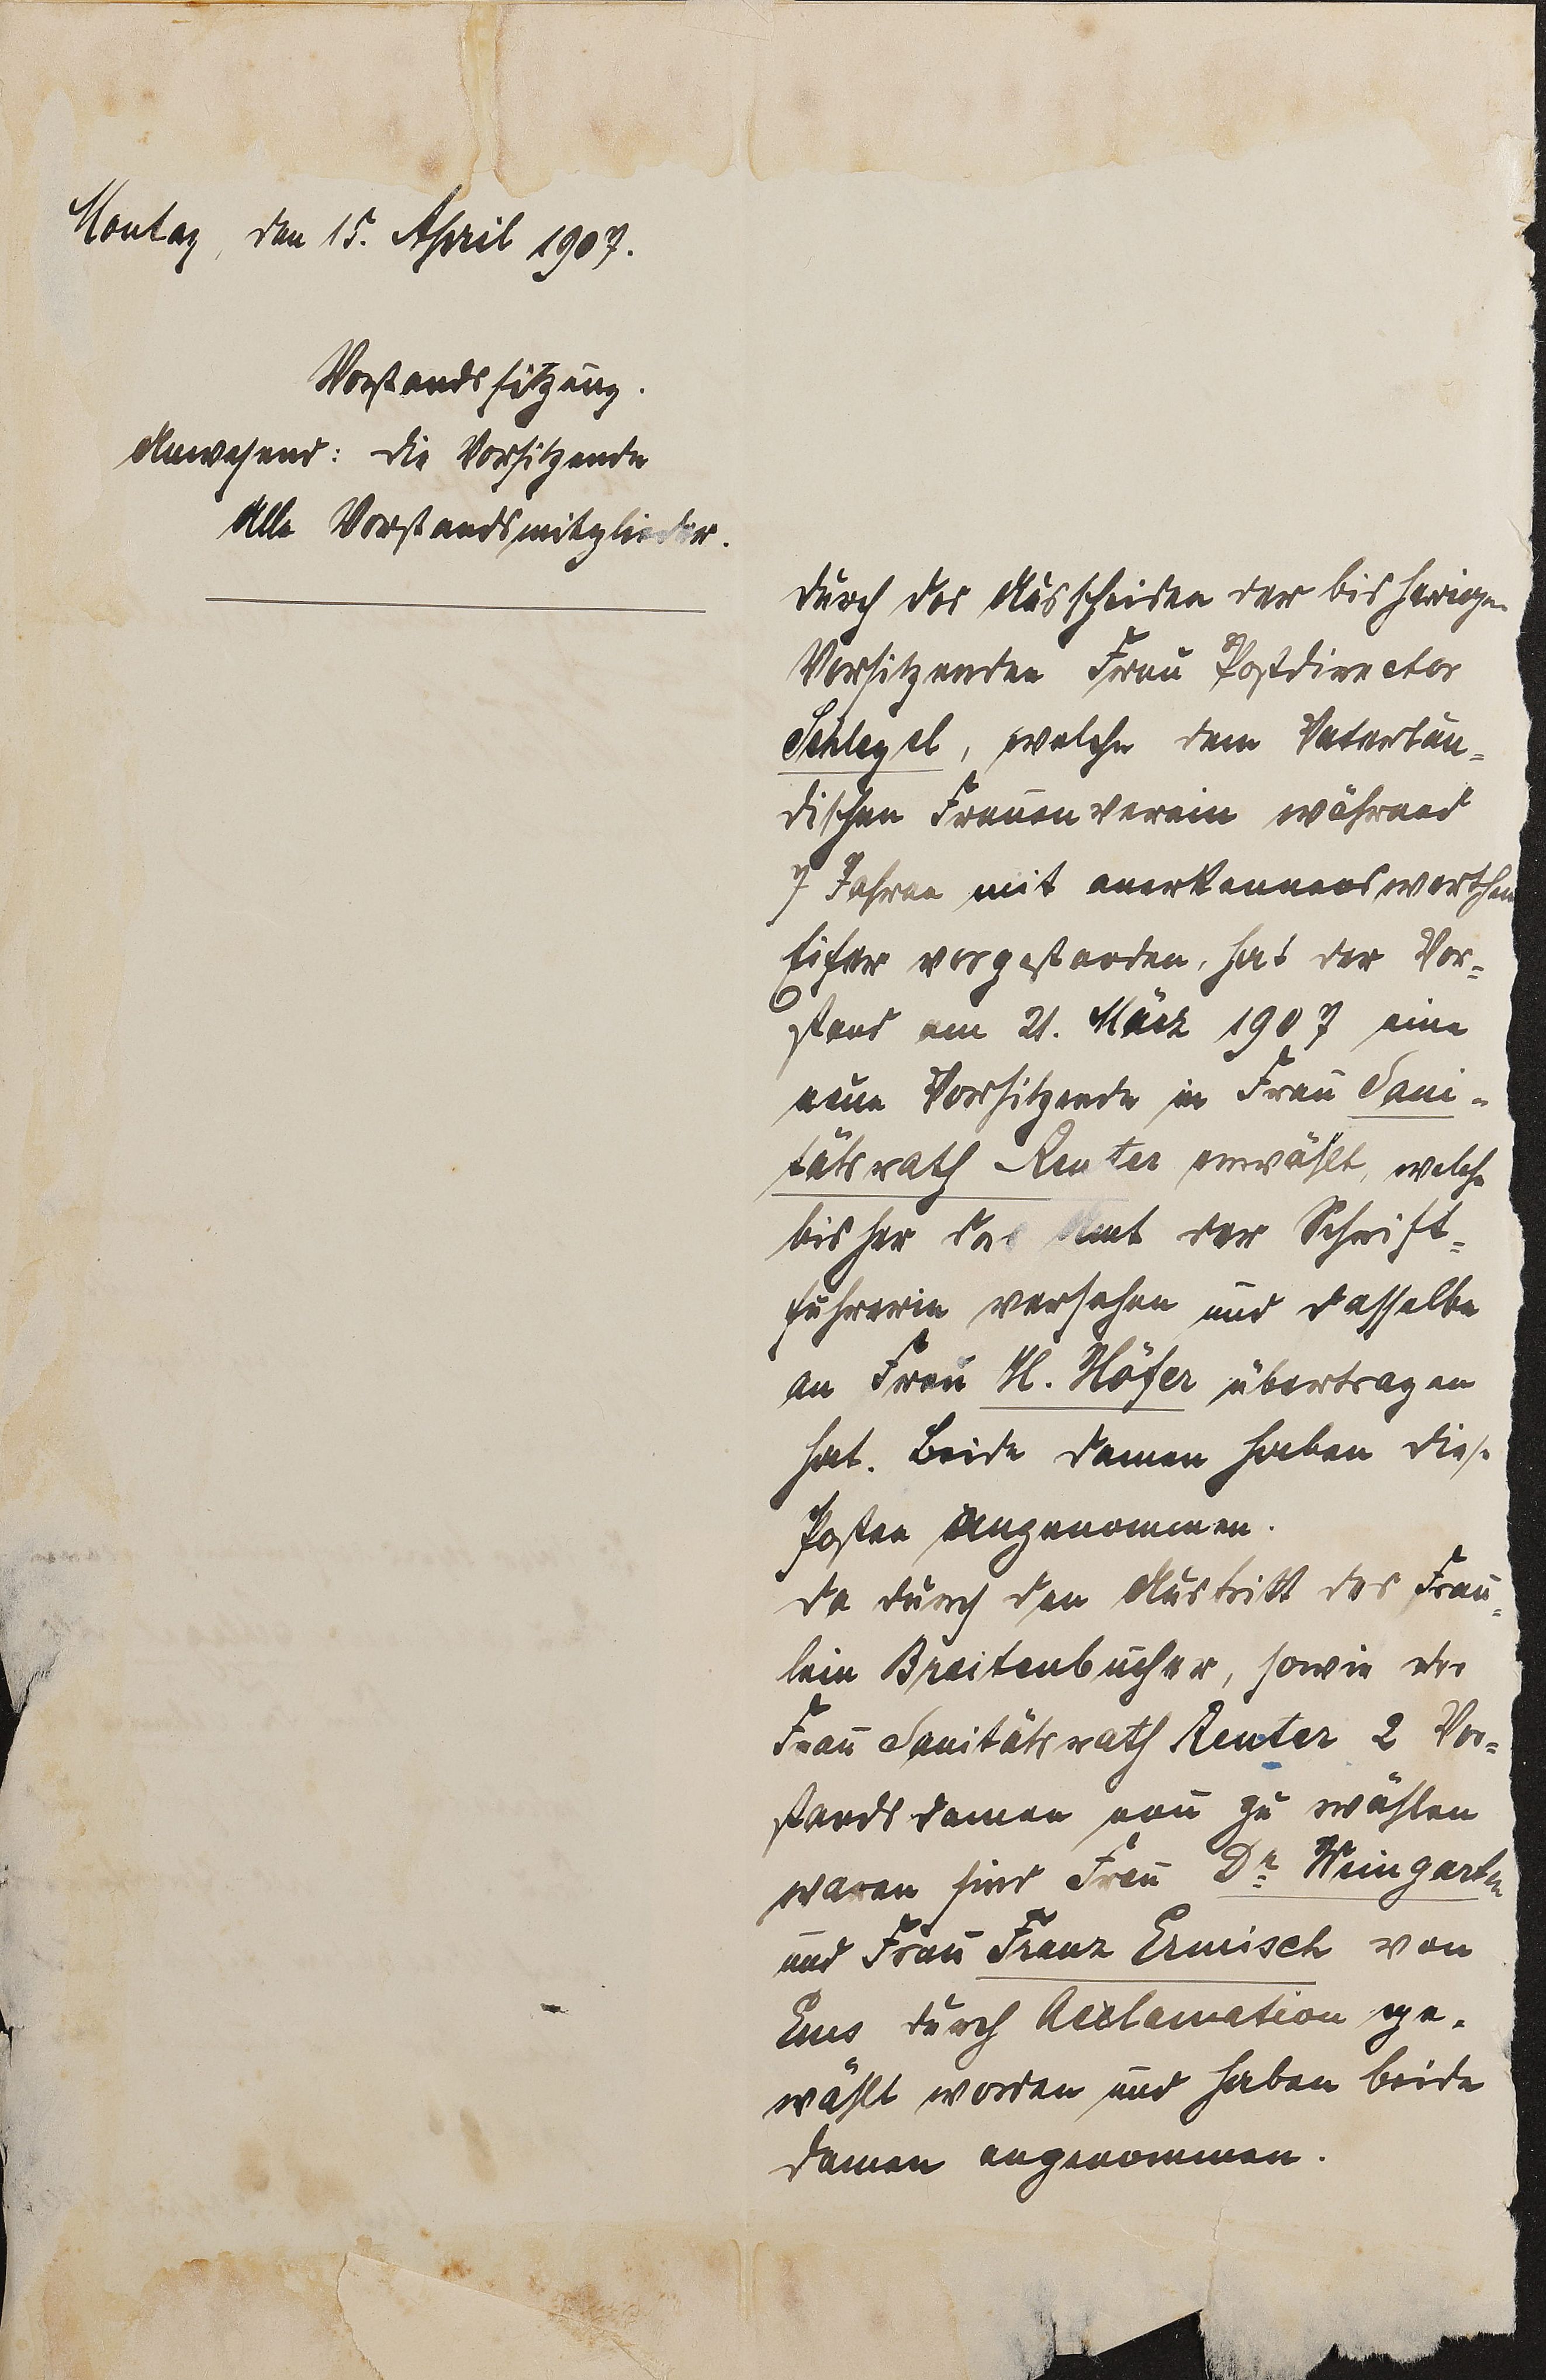 Montag, den 15. April 1907.
Vorstandssitzung.
Anwesend: Die Vorsitzende
Alle Vorstandsmitglieder.
Durch das Ausscheiden der bisherigen
Vorsitzenden Frau Postdirector
Schlegel, welche dem Vaterlän-
dischen Frauenverein während
7 Jahren mit anerkennenswerthem
Eifer vorgestanden, hat der Vor-
stand am 21. März 1907 eine
neue Vorsitzende in Frau Sani-
tätsrath Reuter erwählt, welche
bisher das Amt der Schrift-
führerin versehen und dasselbe
an Frau H. Höfer übertragen
hat. Beide Damen haben diese
Posten angenommen.
Da durch den Austritt des Fräu-
lein Breitenbücher, sowie der
Frau Sanitätsrath Reuter 2 Vor-
standsdamen neu zu wählen
waren sind Frau Dr. Weingarten
und Frau Franz Ermisch von
Ems durch Acclamation ge-
wählt worden und haben beide
Damen angenommen.